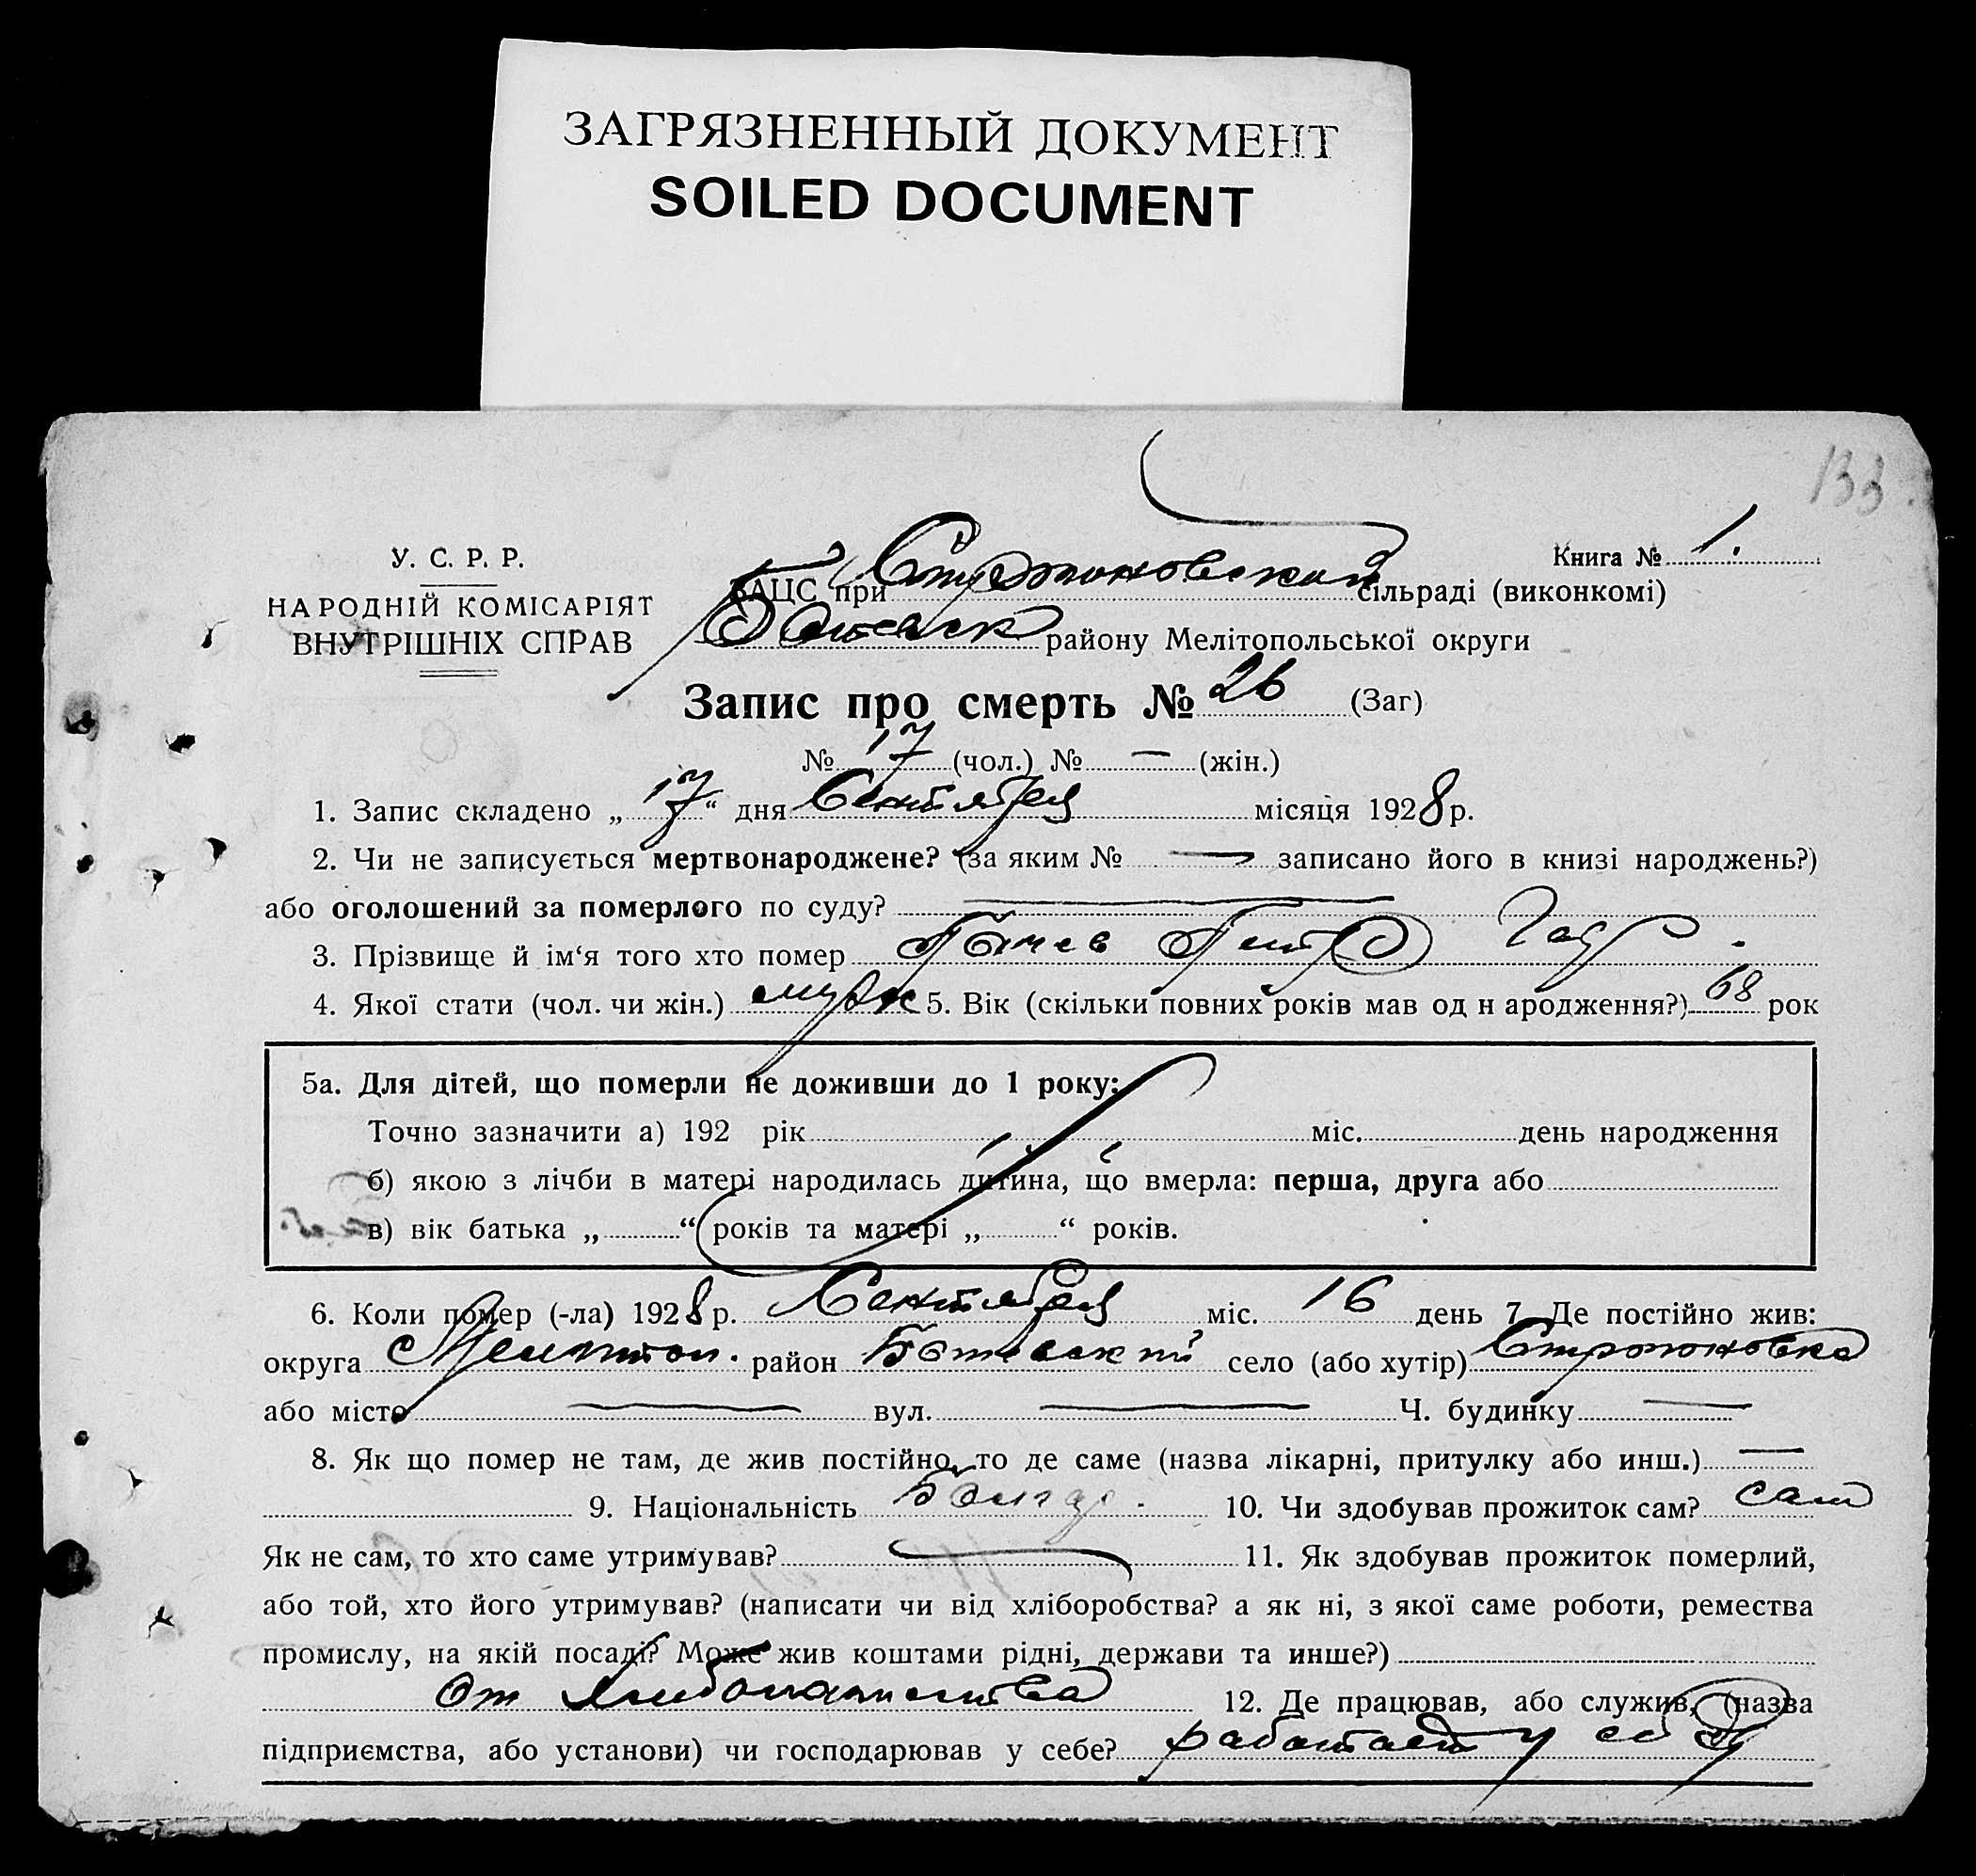 ЗАГРЯЗНЕННЫЙ ДОКУМЕНТ
SOILED DOCUMENT
133
У. С. Р. Р.
НАРОДНІЙ КОМІСАРІЯТ
ВНУТРІШНІХ СПРАВ
Книга № 1.
ЗАЦС при Строгоновской сільраді (виконкомі)
району Мелітопольської округи
Запис про смерть № 26 (Заг)
№ 17 (чол.) № — (жін.)
1. Запис складено „17“ дня Сентября місяця 1928 р.
2. Чи не записується мертвонароджене? (за яким № — записано його в книзі народжень?)
або оголошений за померлого по суду? —
3. Прізвище й ім‘я того хто помер Петр
4. Якої стати (чол. чи жін.) муж 5. Вік (скільки повних років мав од н ародження?) 68 рок
5а. Для дітей, що померли не доживши до 1 року:
Точно зазначити а) 192 рік міс. день народження
б) якою з лічби в матері народилась дитина, що вмерла: перша, друга або
в) вік батька „ “ років та матері „ “ років.
6. Коли помер (-ла) 1928 р. Сентября міс. 16 день 7. Де постійно жив:
округа Мелитоп. район Ботевский село (або хутір) Строгоновка
або місто — вул. — Ч. будинку —
8. Як що помер не там, де жив постійно, то де саме (назва лікарні, притулку або инш.) —
9. Національність Болгар. 10. Чи здобував прожиток сам? сам
Як не сам, то хто саме утримував? — 11. Як здобував прожиток померлий,
або той, хто його утримував? (написати чи від хліборобства? а як ні, з якої саме роботи, ремества
промислу, на якій посаді? Може жив коштами рідні, держави та инше?)
От хлебопашества 12. Де працював, або служив, (назва
підприємства, або установи) чи господарював у себе? работает у себя